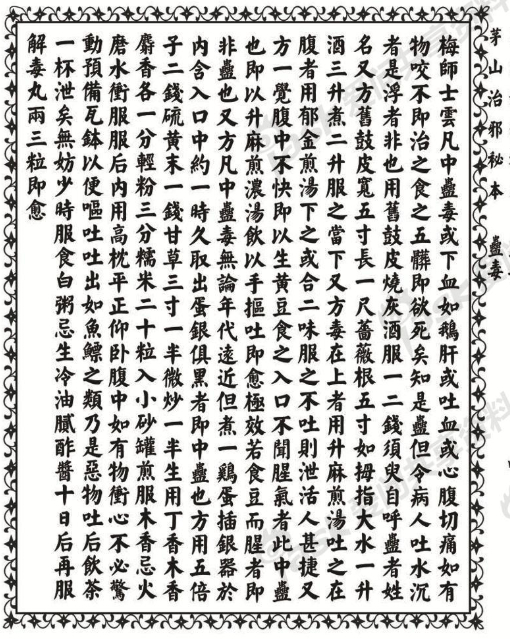 茅山治邪秘本　蠱毒
梅師士雲凡中蠱毒或下血如鵝肝或吐血或心腹切痛如有
物咬不即治之食之五臟即欲死矣知是蠱但令病人吐水沉
者是浮者非也用舊鼓皮燒灰酒服一二錢須臾自呼蠱者姓
名又方舊鼓皮寬五寸長一尺薔薇根五寸如拇指大水一升
酒三升煮二升服之當下又方毒在上者用升麻煎湯吐之在
腹者用郁金煎湯下之或合二味服之不吐則泄活人甚捷又
方一覺腹中不快即以生黃豆食之入口不聞腥氣者此中蠱
也即以升麻煎濃湯飲以手摳吐即愈極效若食豆而腥者即
非蠱也又方凡中蠱毒無論年代遠近但煮一鷄蛋插銀器於
內含入口中約一時久取出蛋銀俱黑者即中蠱也方用五倍
子二錢硫黃末一錢甘草三寸一半微炒一半生用丁香木香
麝香各一分輕粉三分糯米二十粒入小砂罐煎服木香忌火
磨水衝服服后內用高枕平正仰卧腹中如有物衝心不必驚
動預備瓦鉢以便嘔吐吐出如魚鰾之類乃是惡物吐后飲茶
一杯泄矣無妨少時服食白粥忌生冷油膩酢醬十日后再服
解毒丸兩三粒即愈